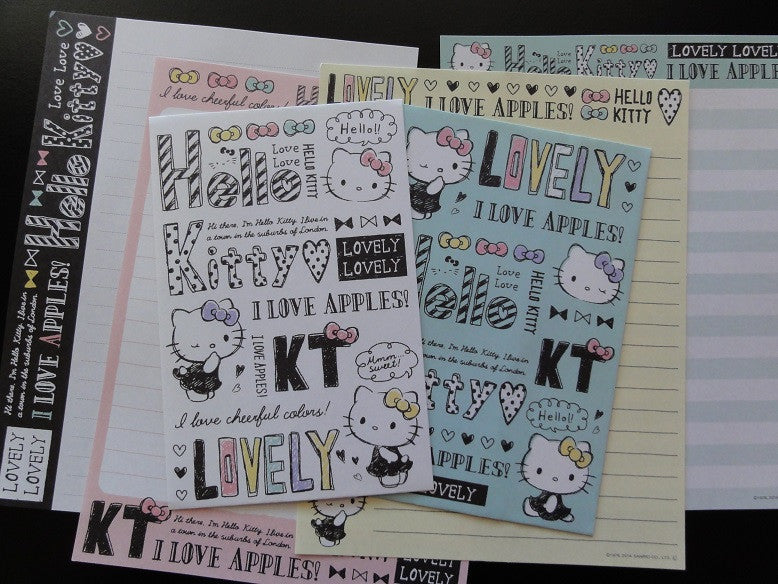 Love Love
Hello
Kitty
Hi there, I'm Hello Kitty. I live in
a town in the suburbs of London.
I LOVE APPLES!
LOVELY
LOVELY
I love cheerful colors!
H
KT
Hi there, I'm Hello Kitty. I live in
a town in the suburbs of London.
I LOVE APPLES!
LOVELY
LOVELY
LOVELY
I LOVE APPLES!
HELLO
KITTY
Hello
Love
Love
Kitty
LOVELY LOVELY
I LOVE APPLES!
Hello
Love
Love
HELLO KITTY
Hello!!
Hi there, I'm Hello Kitty. I live in
a town in the suburbs of London.
Kitty
LOVELY
LOVELY
I LOVE APPLES!
I LOVE APPLES!
KT
Mmm...
sweet!
I love cheerful colors!
LOVELY
LOVELY
I LOVE APPLES!
Hello
Love
Love
HELLO KITTY
KT
Kitty
Hello!!
APPLES!
LOVELY